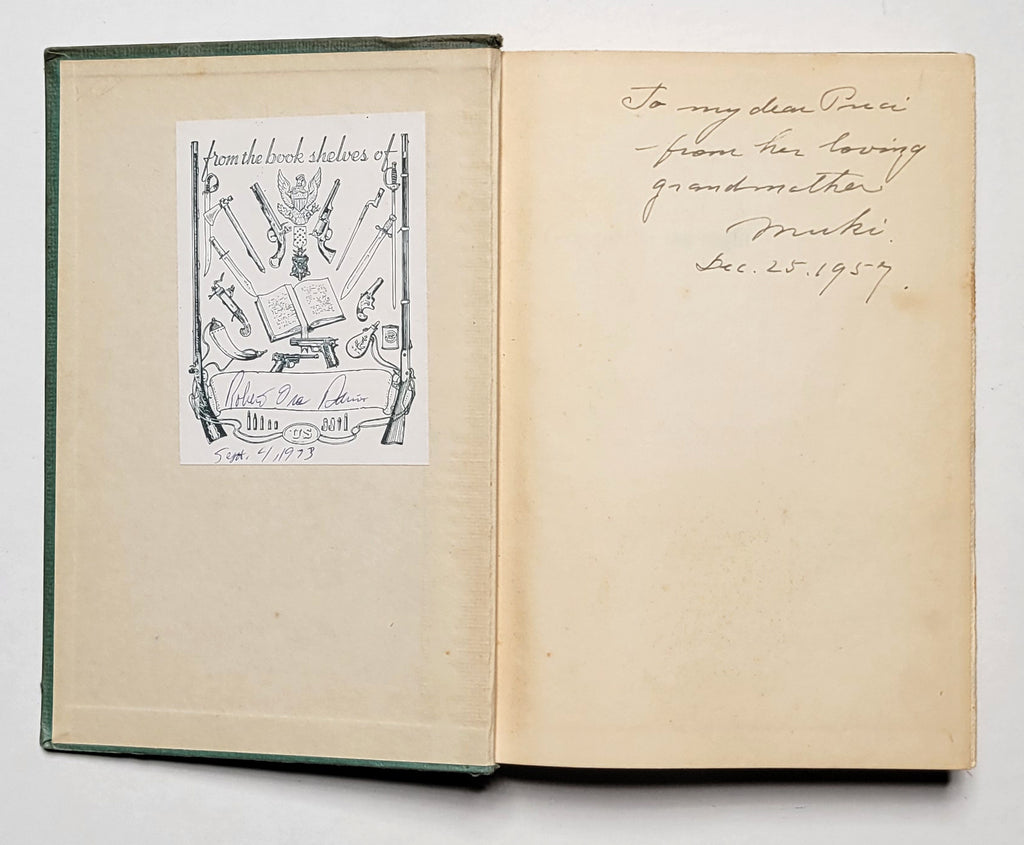 from the book shelves of
Robert Ira
US
Sept. 4, 1973
To my dear
- from her loving
grandmother
Muki.
Dec. 25. 1957.